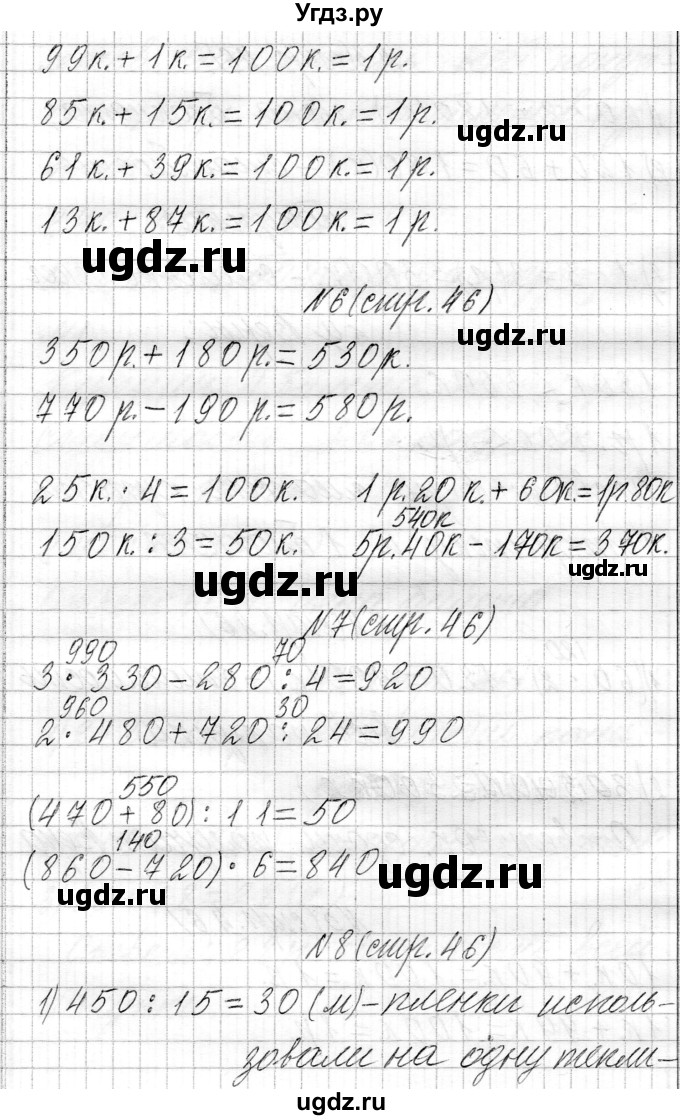 Угдз.ру
99к. + 1к. = 100к. = 1р.
85к. + 15к. = 100к. = 1р.
ugdz.ru
61к. + 39к. = 100к. = 1р.
13к. + 87к. = 100к. = 1р.
ugdz.ru
№6 (стр. 46)
ugdz.ru
350р. + 180р. = 530к.
770р. – 190р. = 580р.
25к. · 4 = 100к. 1р. 20к. + 60к. = 1р 80к
540к
150к. : 3 = 50к. 5р. 40к – 170к = 370к.
ugdz.ru ugdz.ru
№7 (стр. 46)
990 70
3 · 330 – 280 : 4 = 920
960 30
2 · 480 + 720 : 24 = 990
550
(470 + 80) : 11 = 50
140
(860 – 720) · 6 = 840
ugdz.ru ugdz.ru
№8 (стр. 46)
1) 450 : 15 = 30 (м) – пленки исполь-
зовали на одну тепли-
ugdz.ru